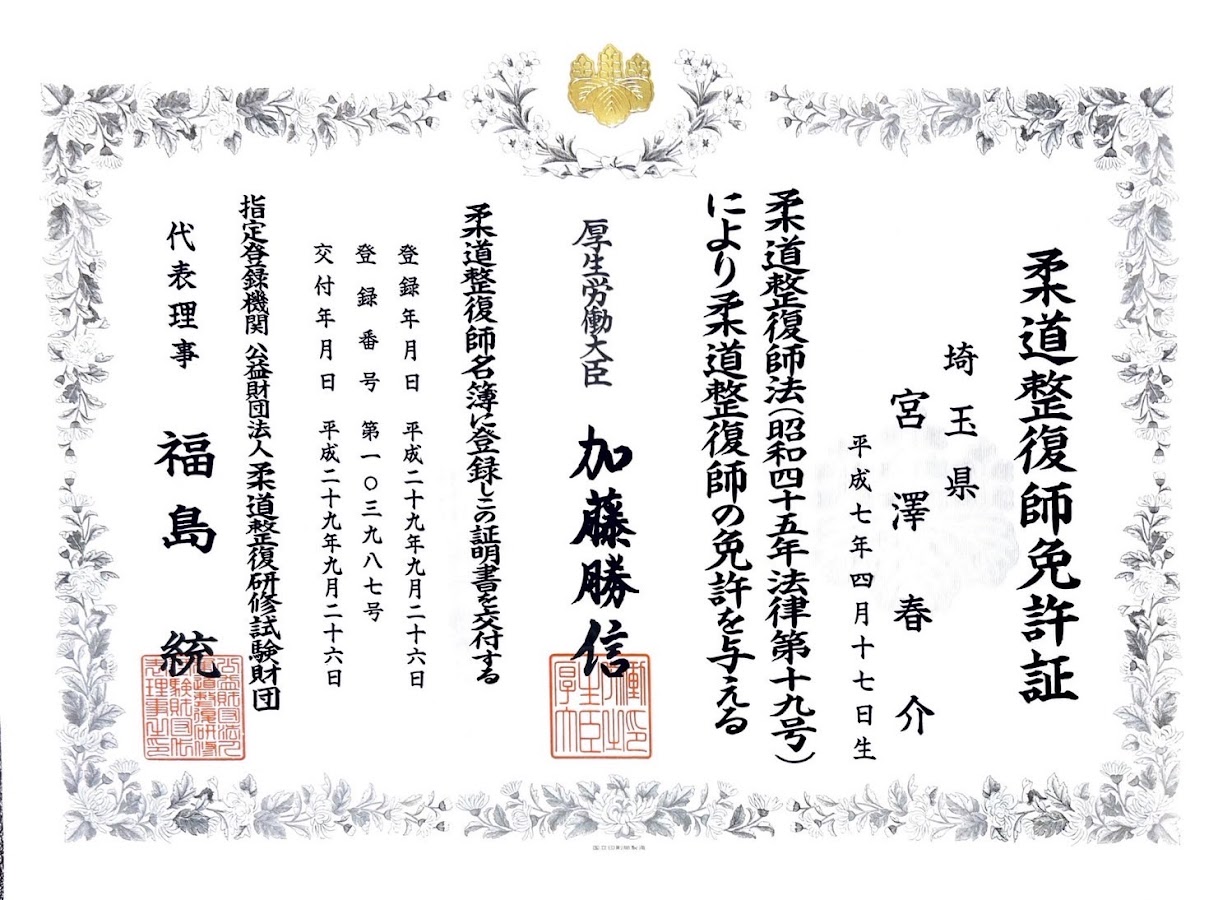 柔道整復師免許証
埼玉県
宮澤春介
平成七年四月十七日生
柔道整復師法（昭和四十五年法律第十九号）
により柔道整復師の免許を与える
厚生労働大臣 加藤勝信
柔道整復師名簿に登録しこの証明書を交付する
登録年月日 平成二十九年九月二十六日
登録番号 第一〇三九八七号
交付年月日 平成二十九年九月二十六日
指定登録機関 公益財団法人 柔道整復研修試験財団
代表理事 福島 統